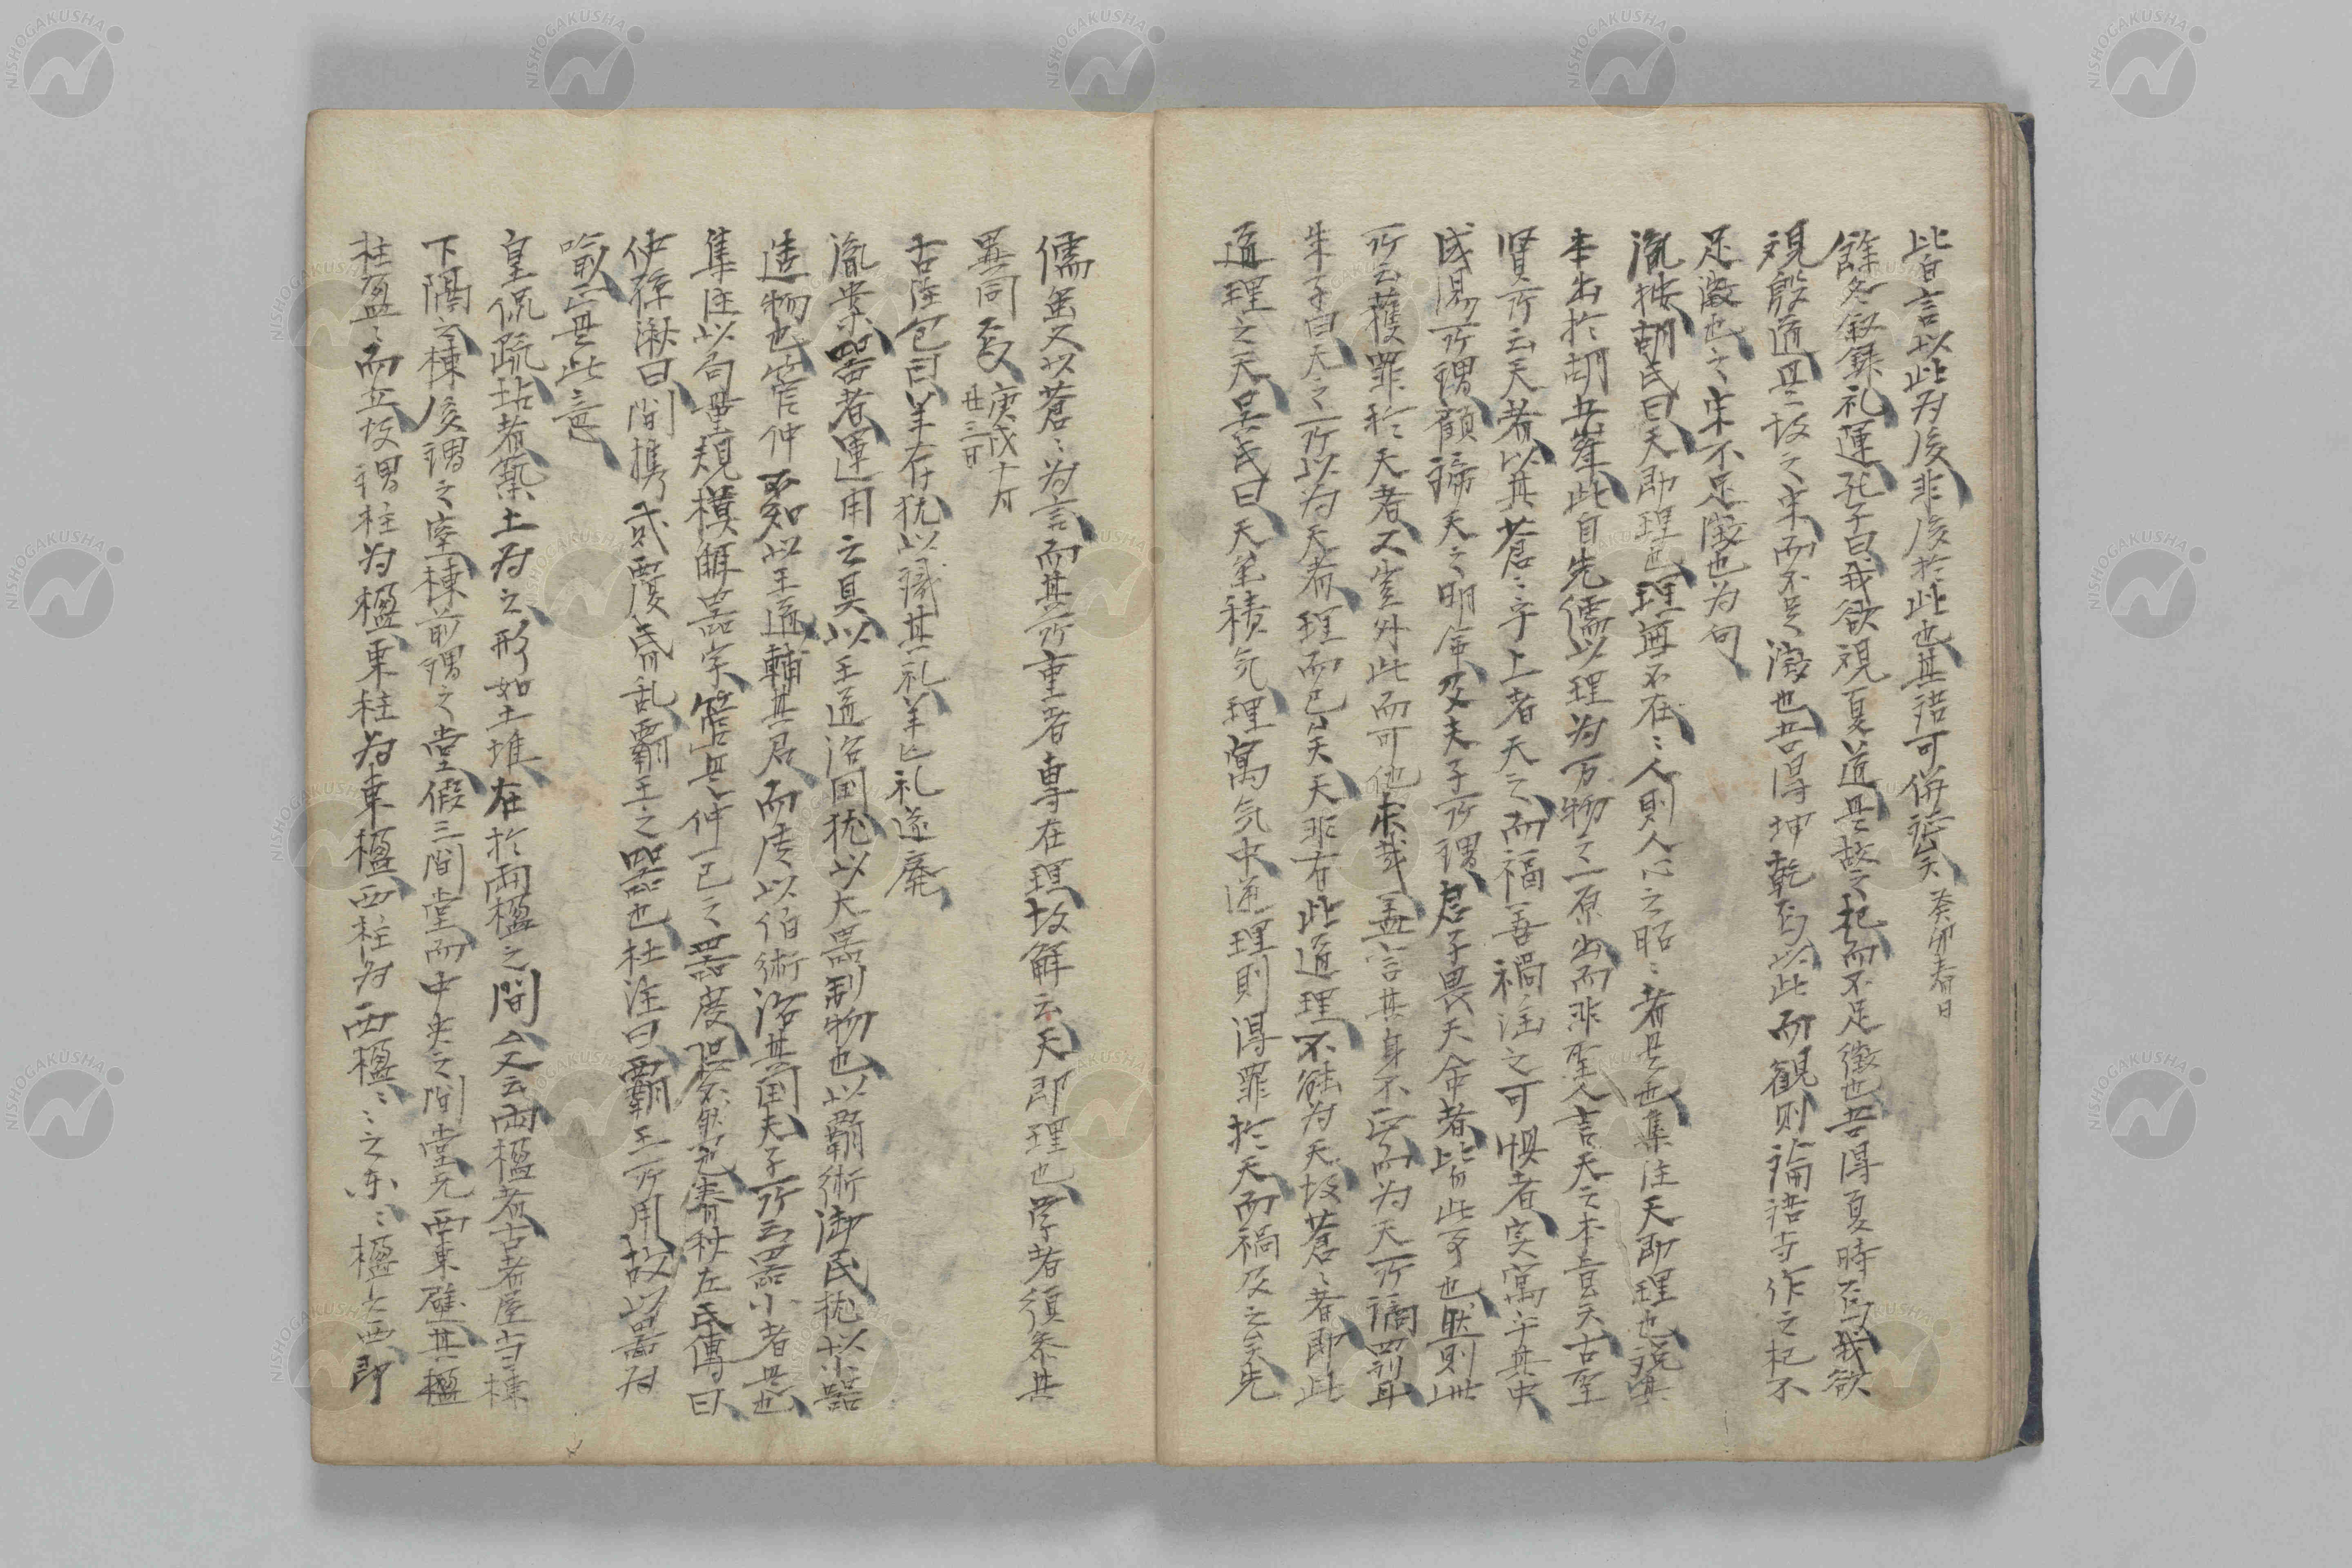 皆言以此为後非後於此也其語可併證矣 癸卯春日
餘冬叙録礼運孔子曰我欲観夏道是故之杞而不足徴也吾得夏時焉我欲
観殷道是故之宋而不足徴也吾得坤乾焉以此而観則論語亦作之杞不
足徴也之宋不足徴也为句
胤按胡氏曰天即理也理無不在〻人則人心之昭〻者是也集注天即理也説
本出於胡五峯此自先儒以理为万物之一原出而非聖人言天之本旨矣古聖
贤所云天者以其蒼〻乎上者天之而福善禍淫之可惧者实寓乎其中
成湯所謂顧諟天之明命及夫子所謂君子畏天命者皆此可也然則此
所云獲罪於天者又豈外此而可他求哉盖言其身不正而为天所謫罰耳
朱子曰天之所以为天者理而已矣天非有此道理不能为天故蒼〻者即此
道理之天吴氏曰天至積気理寓気中逆理則得罪於天而禍及之矣先
儒虽又以蒼〻为言而其所重者専在理故解云天即理也学者須参其
異同焉 庚戌十月廿三日
古注包曰羊存猶以識其礼羊亡礼遂廃
胤案器者運用之具以王道治国猶以大器制物也以覇術御民猶以小器
造物也管仲不知以王道輔其君而徒以伯術治其国夫子所云器小者是也
集注以局量規模解器字管是仲一己之器度恐不然也春秋左氏傳曰
仲孫湫曰間携貳覆昏乱覇王之器也杜注曰覇王所用故以器为
喩正是此意
皇侃疏坫者築土为之形如土堆在於兩楹之間又云兩楹者古者屋当棟
下隔之棟後謂之室棟前謂之堂假三間堂而中央之間堂无西東壁其楹
柱盈〻而立故謂柱为楹東柱为東楹西柱为西楹〻之东〻楹之西即